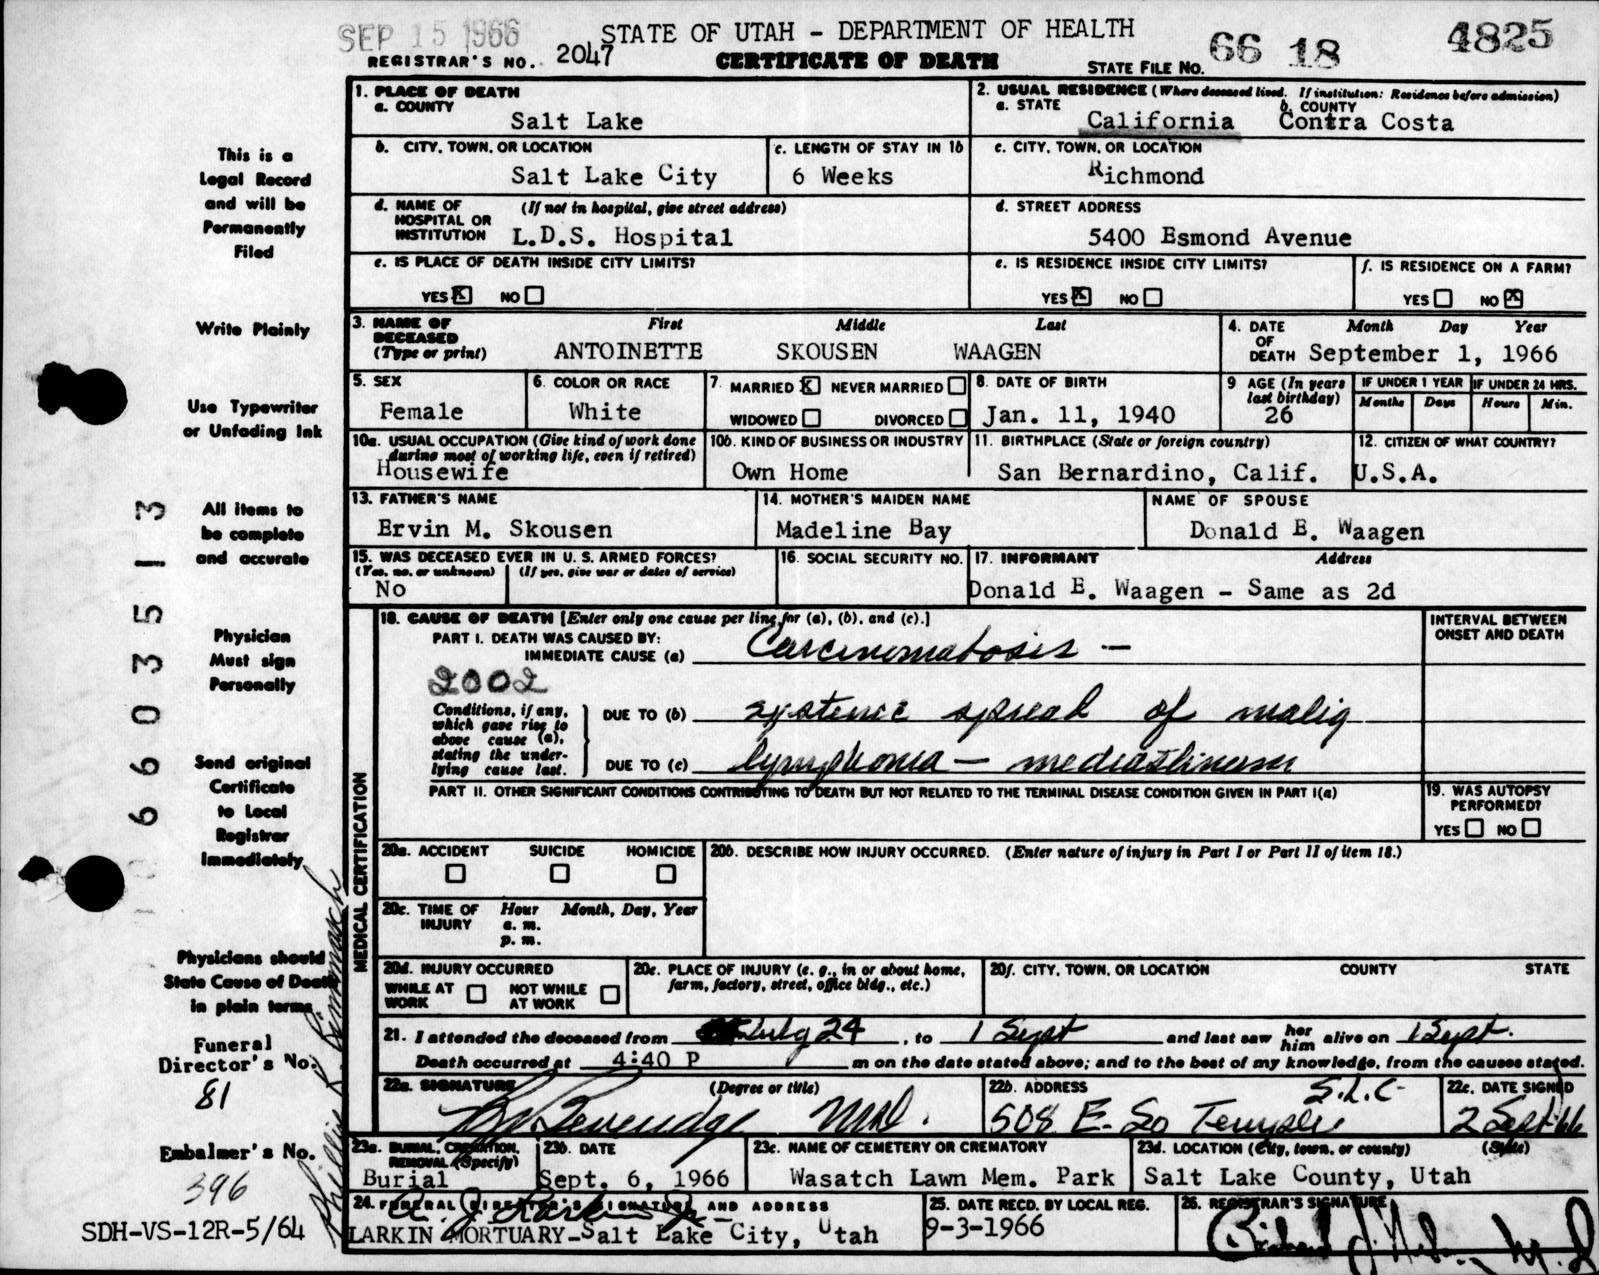 SEP 15 1966
STATE OF UTAH - DEPARTMENT OF HEALTH
66 18 4825
REGISTRAR'S NO. 2047
CERTIFICATE OF DEATH
STATE FILE NO.
1. PLACE OF DEATH
a. COUNTY
Salt Lake
2. USUAL RESIDENCE (Where deceased lived. If institution: Residence before admission)
a. STATE b. COUNTY
California Contra Costa
b. CITY, TOWN, OR LOCATION
Salt Lake City
c. LENGTH OF STAY IN 1b
6 Weeks
c. CITY, TOWN, OR LOCATION
Richmond
d. NAME OF HOSPITAL OR INSTITUTION (If not in hospital, give street address)
L.D.S. Hospital
d. STREET ADDRESS
5400 Esmond Avenue
e. IS PLACE OF DEATH INSIDE CITY LIMITS?
YES X NO
e. IS RESIDENCE INSIDE CITY LIMITS?
YES X NO
f. IS RESIDENCE ON A FARM?
YES NO X
3. NAME OF DECEASED (Type or print) First Middle Last
ANTOINETTE SKOUSEN WAAGEN
4. DATE OF DEATH Month Day Year
September 1, 1966
5. SEX
Female
6. COLOR OR RACE
White
7. MARRIED X NEVER MARRIED
WIDOWED DIVORCED
8. DATE OF BIRTH
Jan. 11, 1940
9 AGE (In years last birthday)
26
IF UNDER 1 YEAR
Months Days
IF UNDER 24 HRS.
Hours Min.
10a. USUAL OCCUPATION (Give kind of work done during most of working life, even if retired)
Housewife
10b. KIND OF BUSINESS OR INDUSTRY
Own Home
11. BIRTHPLACE (State or foreign country)
San Bernardino, Calif.
12. CITIZEN OF WHAT COUNTRY?
U.S.A.
13. FATHER'S NAME
Ervin M. Skousen
14. MOTHER'S MAIDEN NAME
Madeline Bay
NAME OF SPOUSE
Donald E. Waagen
15. WAS DECEASED EVER IN U. S. ARMED FORCES?
(Yes, no, or unknown) (If yes, give war or dates of service)
No
16. SOCIAL SECURITY NO.
17. INFORMANT Address
Donald E. Waagen - Same as 2d
18. CAUSE OF DEATH [Enter only one cause per line for (a), (b), and (c).]
PART I. DEATH WAS CAUSED BY:
IMMEDIATE CAUSE (a) Carcinomatosis -
INTERVAL BETWEEN ONSET AND DEATH
2002
Conditions, if any, which gave rise to above cause (a), stating the underlying cause last.
DUE TO (b) spread of malig
DUE TO (c) lymphoma - mediastinum
PART II. OTHER SIGNIFICANT CONDITIONS CONTRIBUTING TO DEATH BUT NOT RELATED TO THE TERMINAL DISEASE CONDITION GIVEN IN PART I(a)
19. WAS AUTOPSY PERFORMED?
YES NO
MEDICAL CERTIFICATION
20a. ACCIDENT SUICIDE HOMICIDE
20b. DESCRIBE HOW INJURY OCCURRED. (Enter nature of injury in Part I or Part II of item 18.)
20c. TIME OF INJURY Hour Month, Day, Year
a. m.
p. m.
20d. INJURY OCCURRED
WHILE AT WORK NOT WHILE AT WORK
20e. PLACE OF INJURY (e. g., in or about home, farm, factory, street, office bldg., etc.)
20f. CITY, TOWN, OR LOCATION COUNTY STATE
21. I attended the deceased from 24, to 1 Sept and last saw her him alive on 1 Sept.
Death occurred at 4:40 P m on the date stated above; and to the best of my knowledge, from the causes stated.
22a. SIGNATURE (Degree or title)
Beveridge MD.
22b. ADDRESS S.L.C.
508 E. So Temple
22c. DATE SIGNED
2 Sept 66
23a. BURIAL, CREMATION, REMOVAL (Specify)
Burial
23b. DATE
Sept. 6, 1966
23c. NAME OF CEMETERY OR CREMATORY
Wasatch Lawn Mem. Park
23d. LOCATION (City, town, or county) (State)
Salt Lake County, Utah
24. FUNERAL DIRECTOR'S SIGNATURE AND ADDRESS
LARKIN MORTUARY-Salt Lake City, Utah
25. DATE RECD. BY LOCAL REG.
9-3-1966
26. REGISTRAR'S SIGNATURE
This is a
Legal Record
and will be
Permanently
Filed
Write Plainly
Use Typewriter
or Unfading Ink
All items to
be complete
and accurate
Physician
Must sign
Personally
Send original
Certificate
to Local
Registrar
Immediately
Physicians should
State Cause of Death
in plain terms
Funeral
Director's No.
81
Embalmer's No.
396
SDH-VS-12R-5/64
66 035 1 3